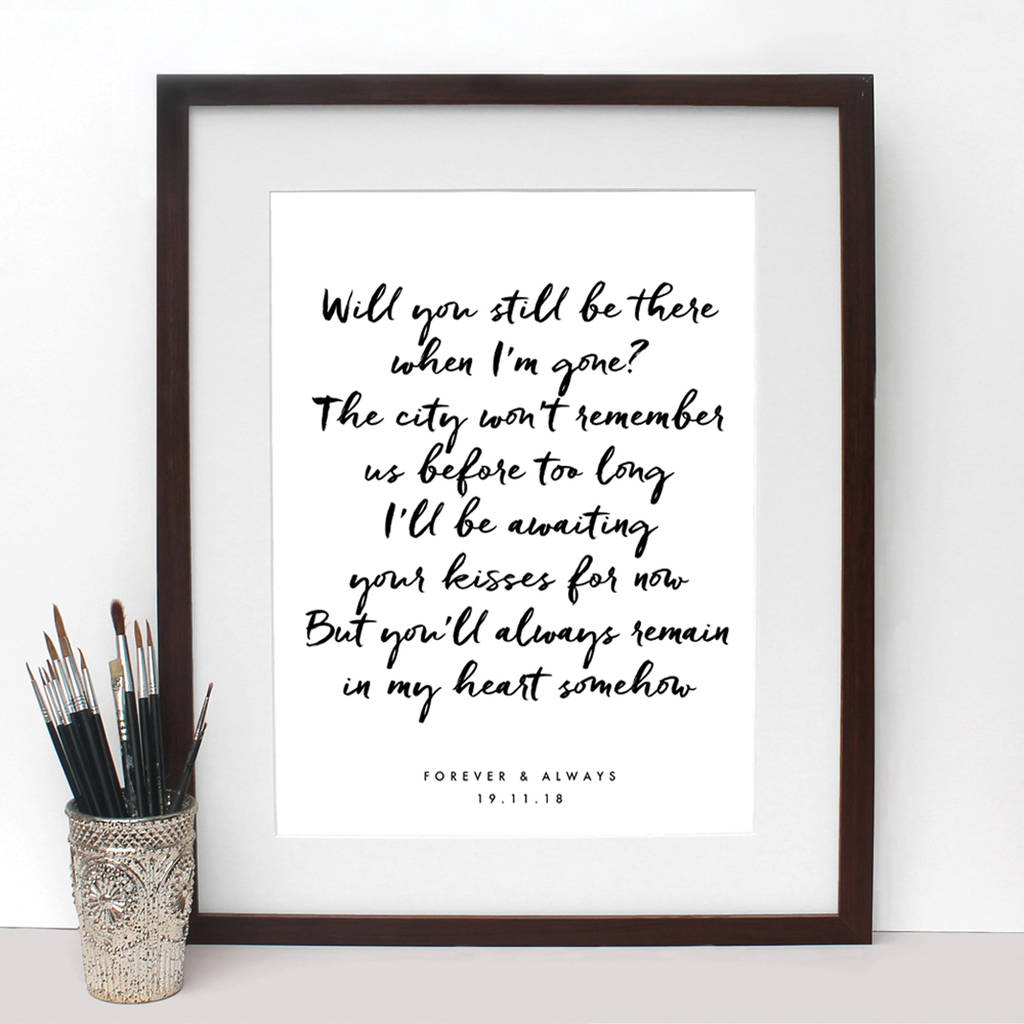 Will you still be there
when I'm gone?
The city won't remember
us before too long
I'll be awaiting
your kisses for now
But you'll always remain
in my heart somehow
FOREVER & ALWAYS
19.11.18